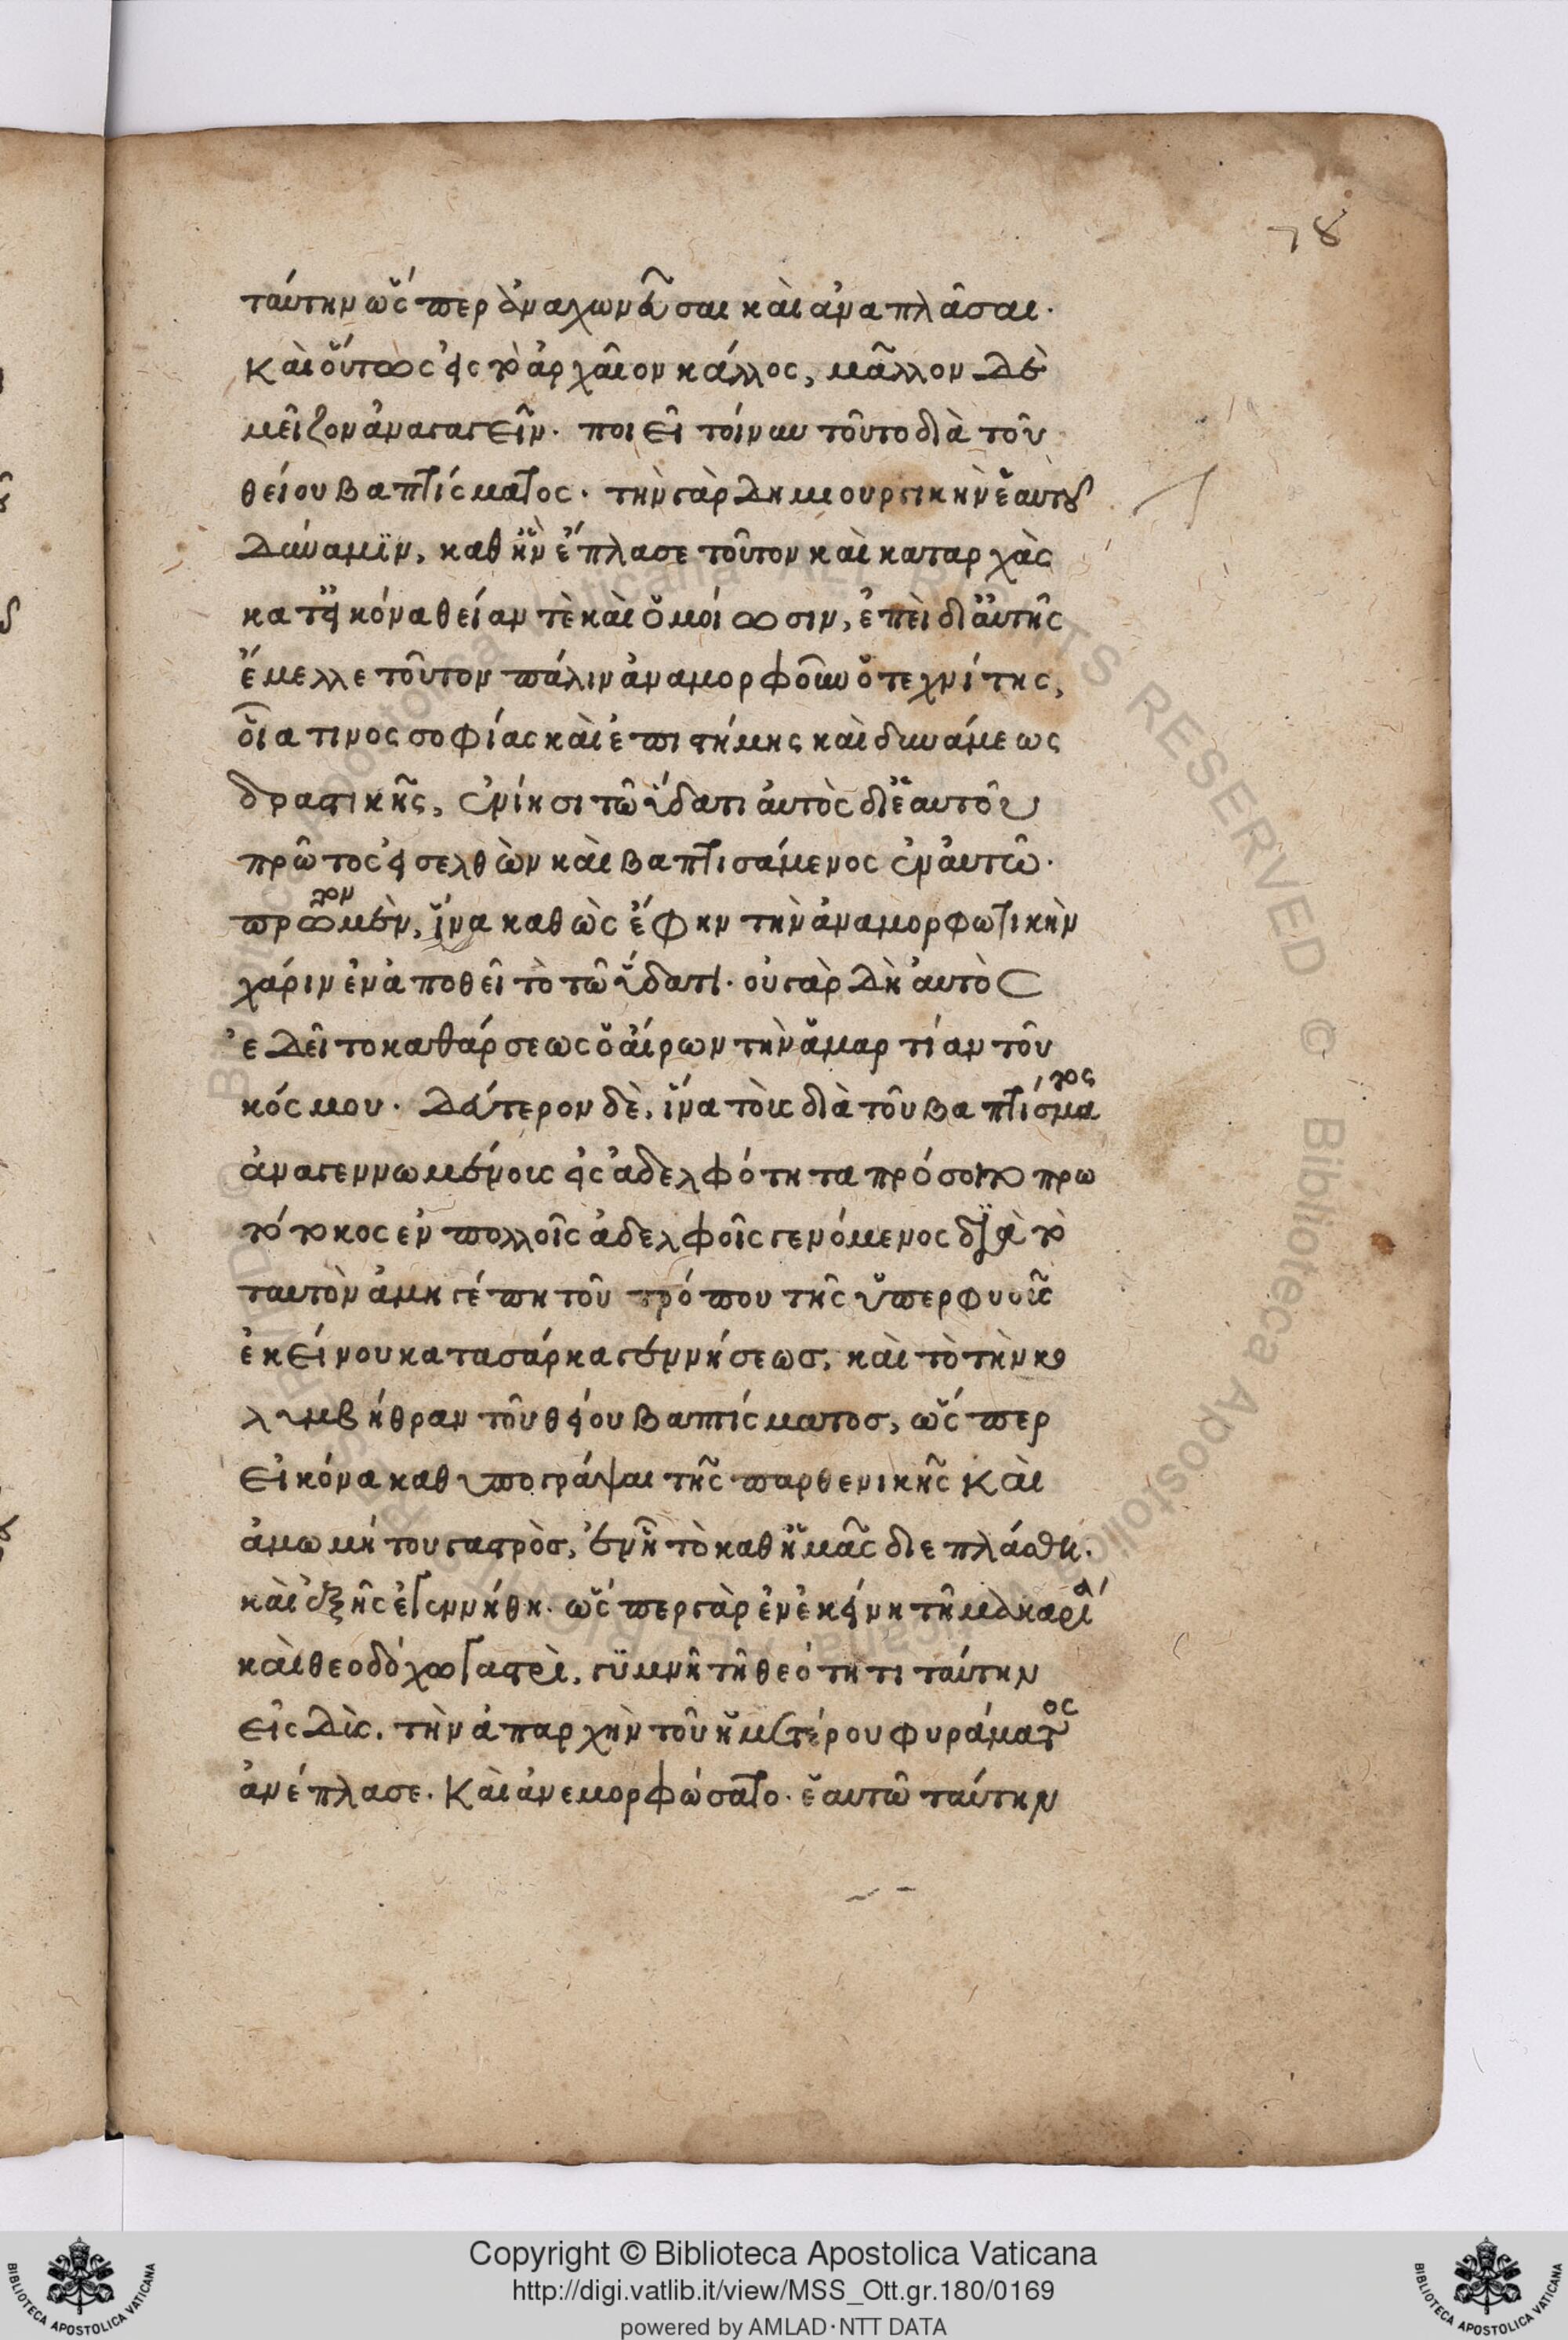 78
ταύτην ὥσπερ ἀναχωνεῦσαι καὶ ἀναπλᾶσαι·
Καὶ οὕτως εἰς τὸ ἀρχαῖον κάλλος, μᾶλλον δὲ
μεῖζον ἀναγαγεῖν· ποιεῖ τοίνυν τοῦτο διὰ τοῦ
θείου βαπτίσματος· τὴν γὰρ δημιουργικὴν ἑαυτοῦ
δύναμϊν, καθ ἣν ἔπλασε τοῦτον καὶ καταρχὰς
κατ εἰκόνα θείαν τὲ καὶ ὁμοίωσιν, ἐπεὶ δι αὐτῆς
ἔμελλε τοῦτον πάλιν ἀναμορφοῦν ὁ τεχνίτης,
οἷα τινος σοφίας καὶ ἐπιστήμης καὶ δυνάμεως
δραστικῆς, ἐνίησι τῶ ὕδατι αὐτὸς δι ἑαυτοῦ
πρῶτος εἰσελθὼν καὶ βαπτισάμενος ἐν αὐτῶ·
πρῶτον μὲν, ἵνα καθὼς ἔφην τὴν ἀναμορφωτικὴν
χάριν ἐναποθεῖτο τῶ ὕδατι· οὐ γὰρ δὴ αὐτὸς
ἐδεῖτο καθάρσεως ὁ αἴρων τὴν ἁμαρτίαν τοῦ
κόσμου· δεύτερον δὲ, ἵνα τοῖς διὰ τοῦ βαπτίσματος
ἀναγεννωμένοις εἰς ἀδελφότητα πρόσοιτο πρω
τότοκος ἐν πολλοῖς ἀδελφοῖς γενόμενος διὰ τὸ
ταυτὸν ἀμηγέπη τοῦ τρόπου τῆς ὑπερφυοῦς
ἐκείνου κατα σάρκα γεννήσεως, καὶ τὸ τὴν κο
λυμβήθραν τοῦ θείου βαπτίσματος, ὥσπερ
εἰκόνα καθυπογράψαι τῆς παρθενικῆς Καὶ
ἀμωμήτου γαστρὸς, ἐν ἧ τὸ καθ ἡμᾶς διεπλάσθη.
καὶ ἐξ ἧς ἐγεννήθη· ὥσπερ γὰρ ἐν ἐκείνη τῆ μακαρία
καὶ θεοδόχω γαστρὶ, γϋμνῆ τῆ θεότητι ταύτην
εἰσδὺς. τὴν ἀπαρχὴν τοῦ ἡμετέρου φυράματος
ἀνέπλασε. Καὶ ἀνεμορφώσατο· ἑαυτῶ ταύτην
Copyright © Biblioteca Apostolica Vaticana
http://digi.vatlib.it/view/MSS_Ott.gr.180/0169
powered by AMLAD·NTT DATA